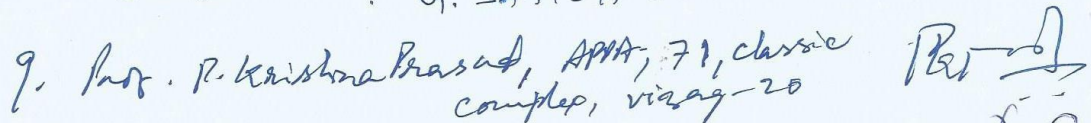 9. Prof. P. Krishna Prasad, APPA, 71, classic
complex, vizag-20